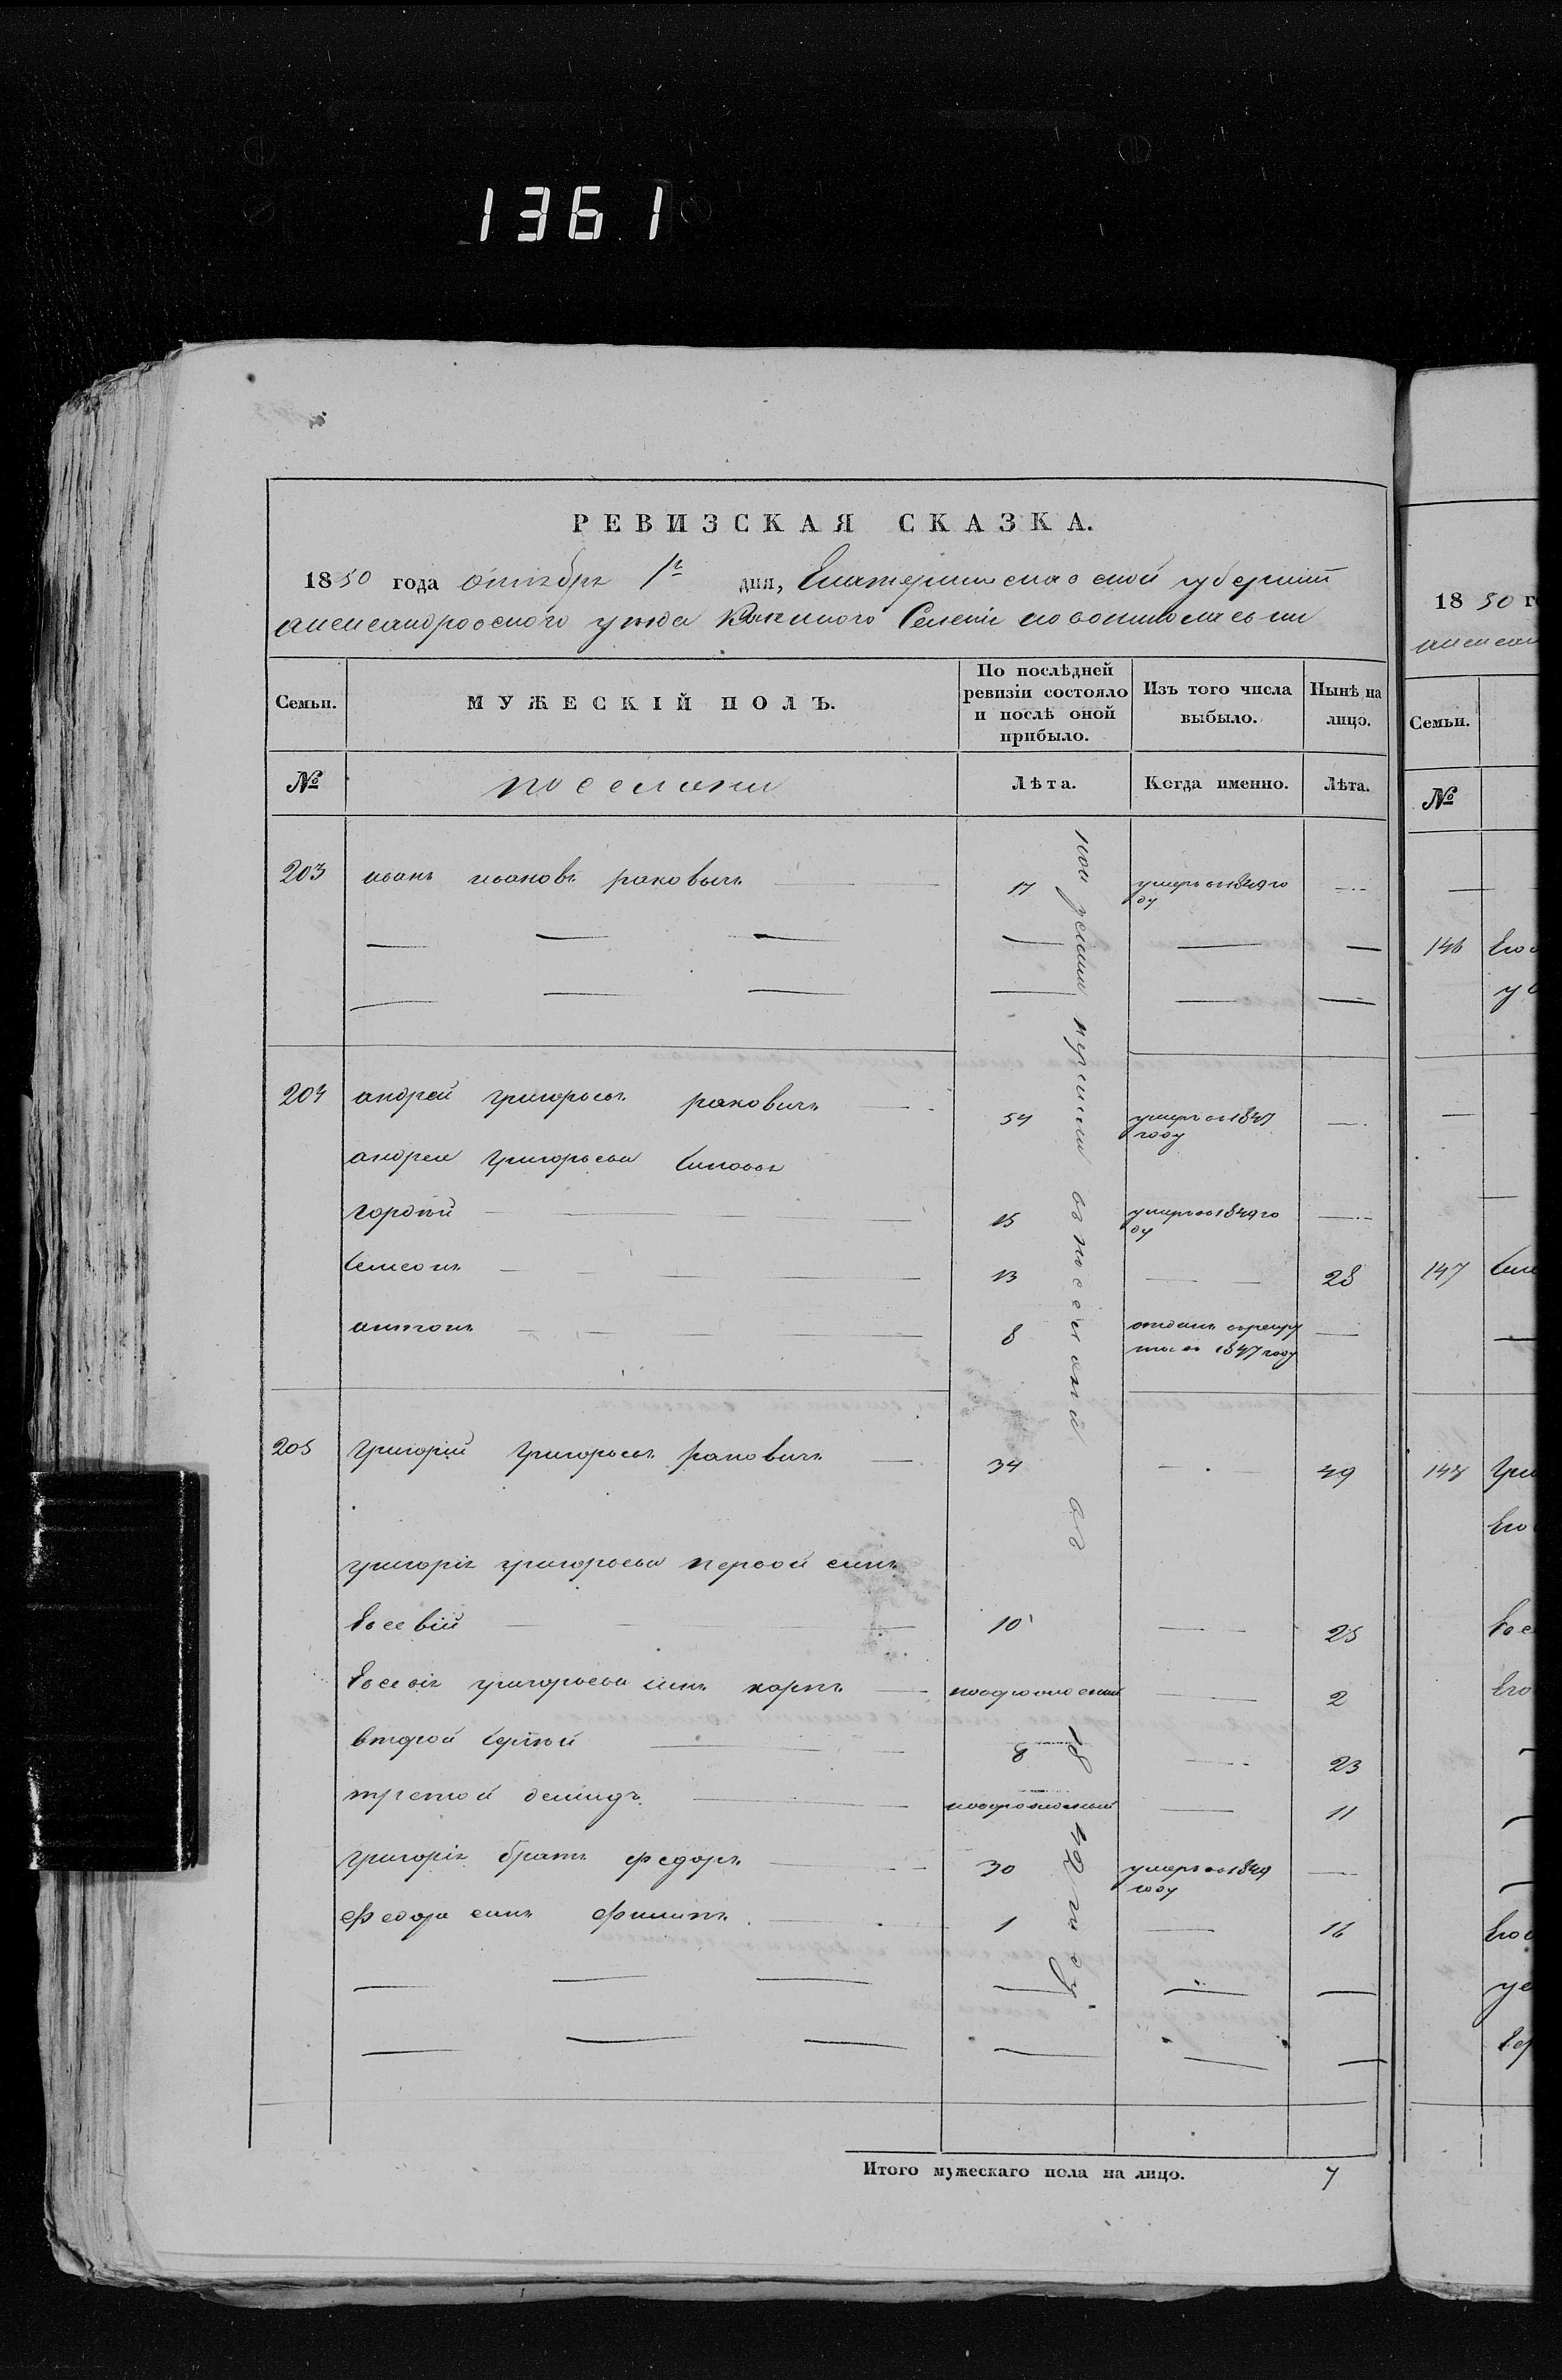 1361
РЕВИЗСКАЯ СКАЗКА.
1850 года октября 1го дня, Екатеринославской губернии
александровского уезда Казенного Селения новониколаевки
Семьи. МУЖЕСКІЙ ПОЛЪ. По послѣдней ревизіи состояло и послѣ оной прибыло. Изъ того числа выбыло. Нынѣ на лицо.
№ поселяни Лѣта. Когда именно. Лѣта.
203 иванъ ивановъ раковичъ 17 умеръ въ 1849 го
ду
204 андрей григорьевъ раковичъ 54 умеръ въ 1847
году
андрея григорьева синовя
гордѣй 15 умеръ въ 1849 го
ду
Симеонъ 13 28
антонъ 8 отданъ въ рекру
ты въ 1847 году
205 григорій григорьевъ раковичъ 34 49
григорія григорьева первой синъ
Евсевій 10 25
Евсевія григорьева синъ карпъ новорожденый 2
второй Сергѣй 8 23
третой демидъ новорожденый 11
григорія братъ федоръ 30 умеръ въ 1849
году
федора синъ филипъ 1 16
въ 1842 году
Итого мужескаго пола на лицо. 7
1850 г
Семьи.
№
146
147
148